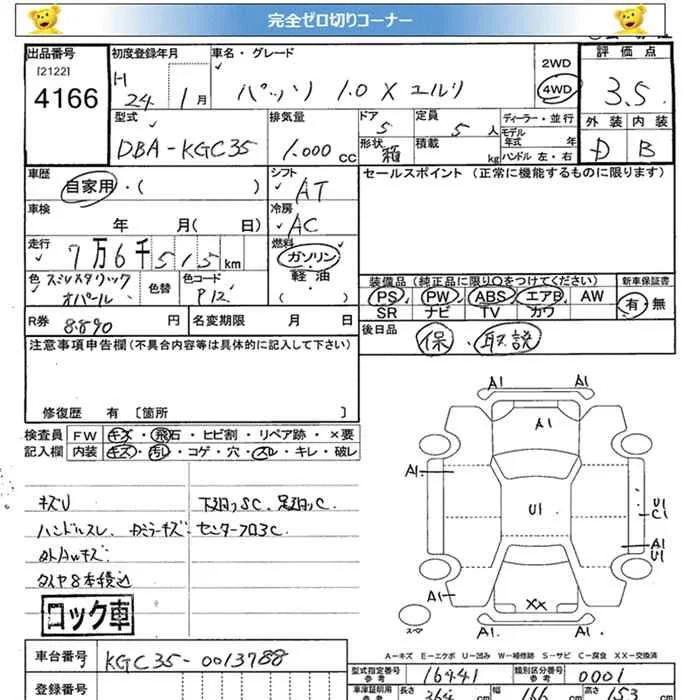 完全ゼロ切りコーナー
出品番号 初度登録年月 車名・グレード 2WD 評価点
[2122] H 24年 1月 パッソ 1.0 X 4WD 3.5
4166
型式 排気量 ドア 定員 ディーラー・並行 外装 内装
DBA-KGC35 1.000cc 5 5人 モデル年式 年 D B
形状 箱 積載 kg ハンドル 左・右
車歴 シフト セールスポイント (正常に機能するものに限ります)
自家用・( ) AT
車検 冷房
年 月( 日) AC
走行 燃料
7万6千515km ガソリン・軽油
色 色替 色コード ( )
オパール P12
装備品 (純正品に限り○をつけてください) 新車保証書
PS PW ABS エアB AW 有・無
SR ナビ TV カワ
R券 8.890円 名変期限 月 日 後日品 保・取説
注意事項申告欄(不具合内容等は具体的に記入して下さい)
修復歴 有 [箇所 ]
検査員 FW キズ・飛石・ヒビ割・リペア跡・×要
記入欄 内装 キズ・汚レ・コゲ・穴・スレ・キレ・破レ
A1 A1
A1
A1
U1 U1
C1
A1
U1
A1 XX
A1 A1
スペア
キズU 下廻りSC、足廻りC、
ハンドルスレ、 センターフロC
AWキズ
タイヤ8本積込
ロック車
A-キズ E-エクボ U-凹み W-補修跡 S-サビ C-腐食 XX-交換済
車台番号 KGC35-0013788
型式指定番号 参考 16441 類別区分番号 参考 0001
登録番号 車庫証明用 参考 長さ 幅 166 高さ 153